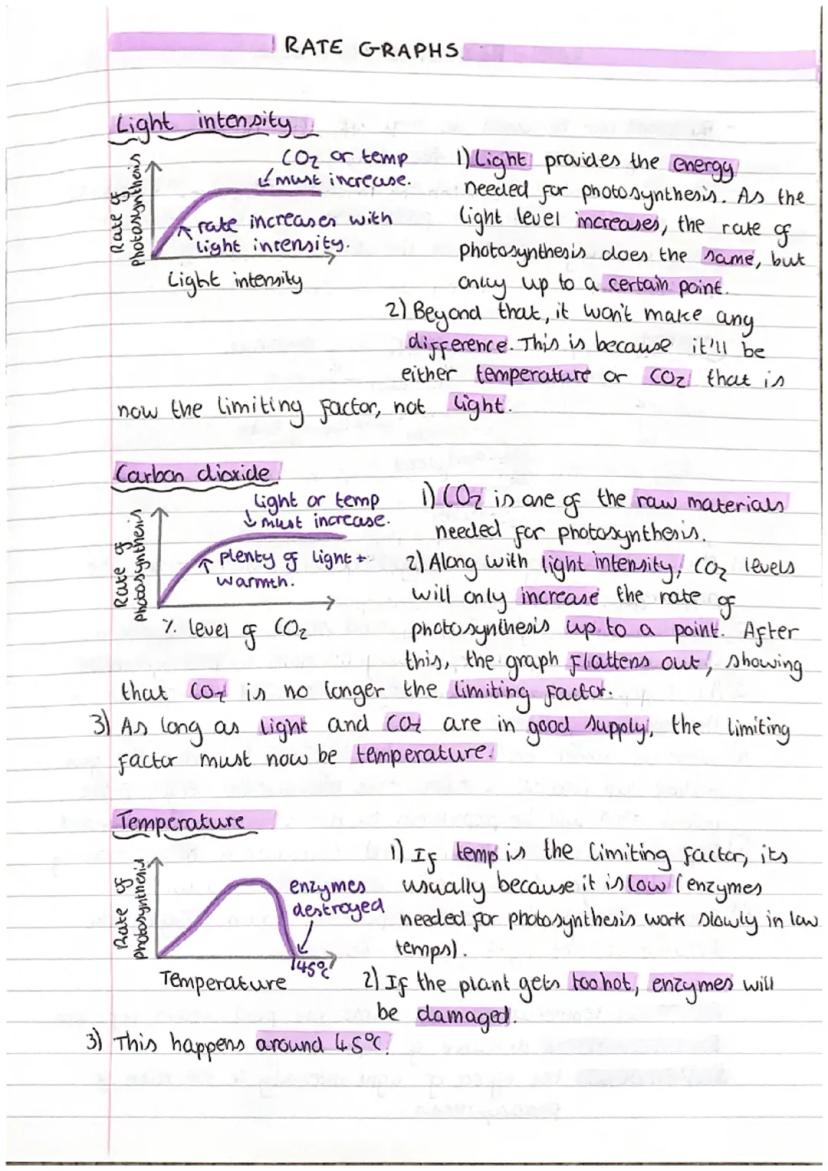 RATE GRAPHS
Light intensity
Rate of
photosynthesis
CO2 or temp
must increase.
rate increases with
light intensity.
Light intensity
1) Light provides the energy
needed for photosynthesis. As the
light level increases, the rate of
photosynthesis does the same, but
only up to a certain point.
2) Beyond that, it won't make any
difference. This is because it'll be
either temperature or CO2 that is
now the limiting factor, not light.
Carbon dioxide
Rate of
photosynthesis
light or temp
must increase.
plenty of light +
warmth.
% level of CO2
1) CO2 is one of the raw materials
needed for photosynthesis.
2) Along with light intensity, CO2 levels
will only increase the rate of
photosynthesis up to a point. After
this, the graph flattens out, showing
that CO2 is no longer the limiting factor.
3) As long as light and CO2 are in good supply, the limiting
factor must now be temperature.
Temperature
Rate of
photosynthesis
enzymes
destroyed
45°C
Temperature
1) If temp is the limiting factor, its
usually because it is low (enzymes
needed for photosynthesis work slowly in low
temps).
2) If the plant gets too hot, enzymes will
be damaged.
3) This happens around 45°C.